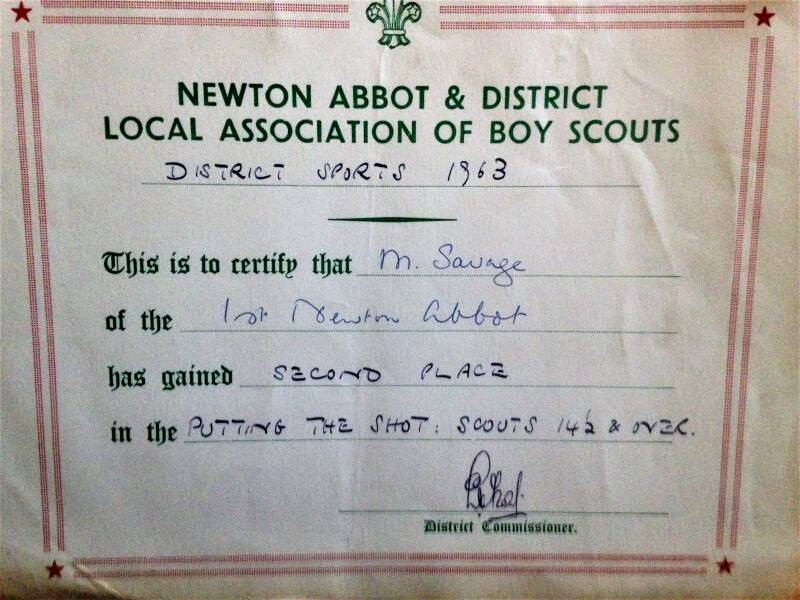 NEWTON ABBOT & DISTRICT
LOCAL ASSOCIATION OF BOY SCOUTS
DISTRICT SPORTS 1963
This is to certify that M. Savage
of the 1st Newton Abbot
has gained SECOND PLACE
in the PUTTING THE SHOT: SCOUTS 14½ & OVER.
District Commissioner.